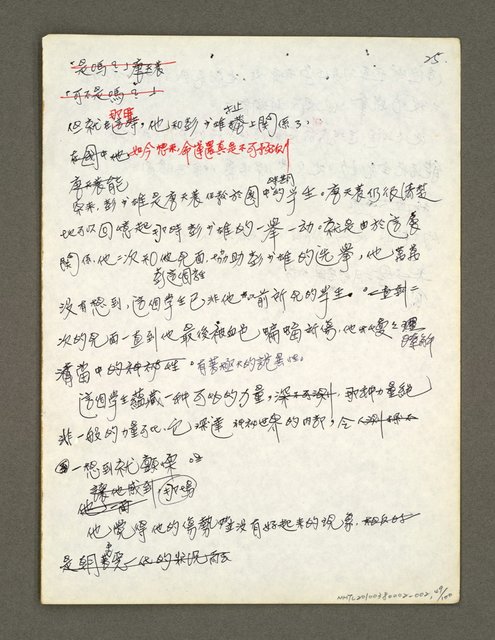 25.
「是嗎？」廖天養
「可不是嗎？」
但就在這時，那事他和彭少雄搭上關係了
在國中他，如今想來，命運還真是不可
廖天養能
原來，彭少雄是廖天養任教於國中時期的學生。廖天養仍很清楚
地可以回憶起那時彭少雄的一舉一動。就是由於這層
關係，他二次和他見面，協助彭少雄的選舉，他萬萬
沒有想到，這個學生已非他以前所見的學生。一直到二
次的見面一直到他最後被血色蝙蝠所傷，他才慢慢理
瞭解
清當中的神祕性。有著極大的詭異性。
這個學生蘊藏一種可怕的力量，深不可測，那種力量絕
非一般的力量可比，它深達神祕世界的內部，令人
一想到就顫慄。
讓他感到，那場
他一面
他覺得他的傷勢並沒有好起來的現象，相反的
是朝著惡化他的狀況
NMTL20100380002-002, 49/100